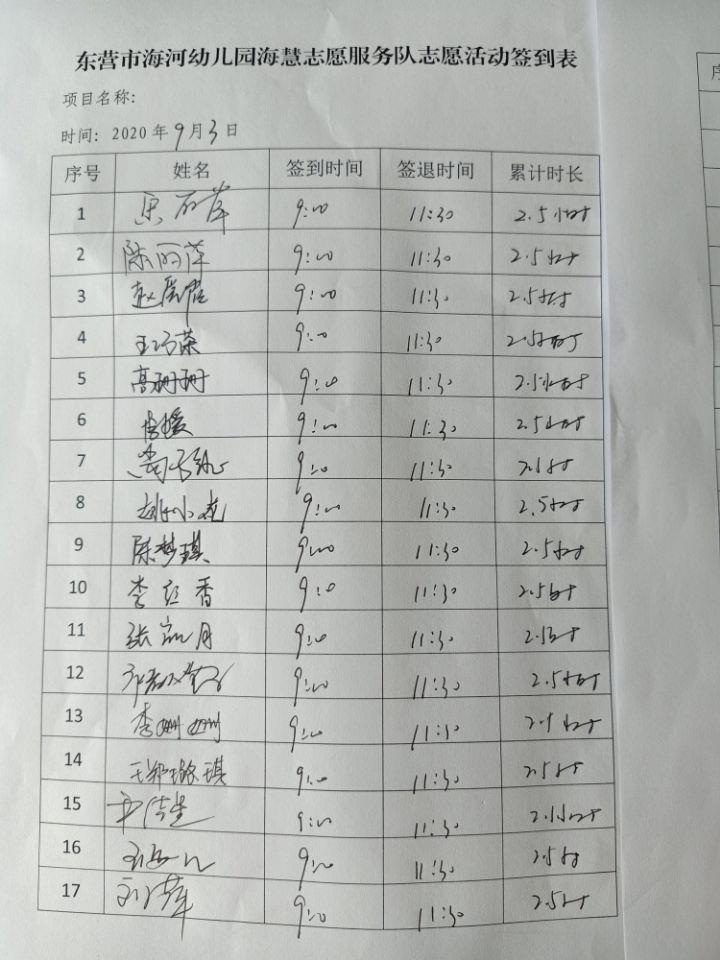 东营市海河幼儿园海慧志愿服务队志愿活动签到表
项目名称:
时间: 2020 年 9 月 3 日
序号 姓名 签到时间 签退时间 累计时长
1 9:00 11:30 2.5小时
2 陈丽萍 9:00 11:30 2.5小时
3 9:00 11:30 2.5小时
4 王巧荣 9:00 11:30 2.5小时
5 高珊珊 9:00 11:30 2.5小时
6 9:00 11:30 2.5小时
7 9:00 11:30 2.5小时
8 赵小花 9:00 11:30 2.5小时
9 陈梦琪 9:00 11:30 2.5小时
10 李红香 9:00 11:30 2.5小时
11 张岚月 9:00 11:30 2.5小时
12 9:00 11:30 2.5小时
13 李姗姗 9:00 11:30 2.5小时
14 王郑璐琪 9:00 11:30 2.5小时
15 9:00 11:30 2.5小时
16 9:00 11:30 2.5小时
17 9:00 11:30 2.5小时
序